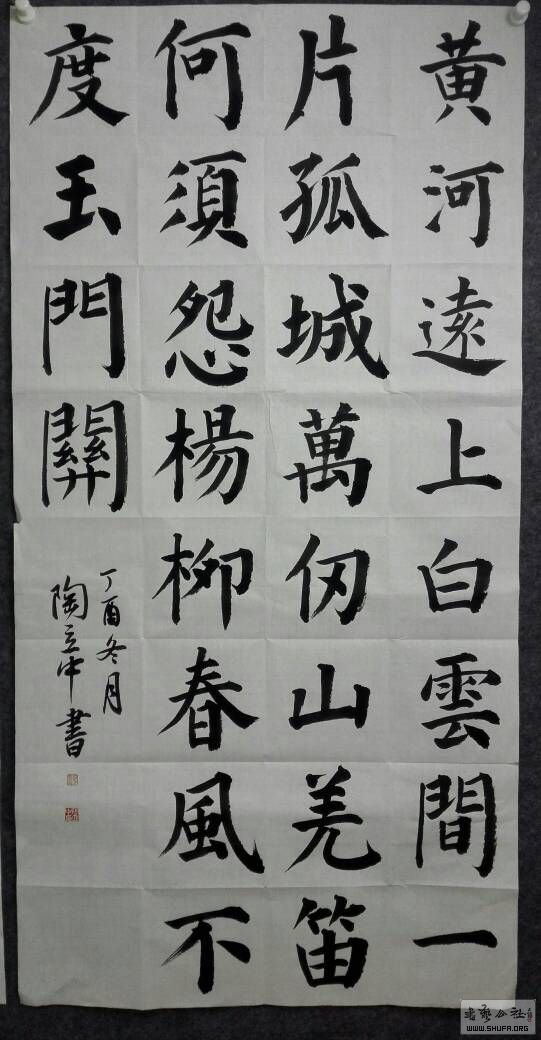 黄河遠上白雲間一
片孤城萬仞山羌笛
何須怨楊柳春風不
度玉門關
丁酉冬月
陶立中書
WWW.SHUFA.ORG